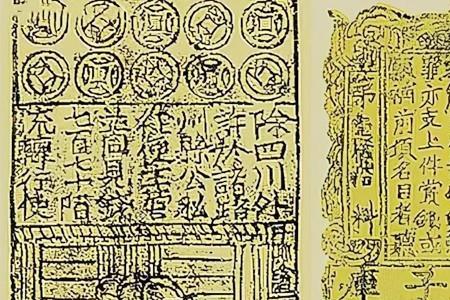 除四川外
許於諸路
州縣公私
從便主管
並同見錢
七百七十陌
流轉行使
亦支上件賞銀
前項名目者聽
料